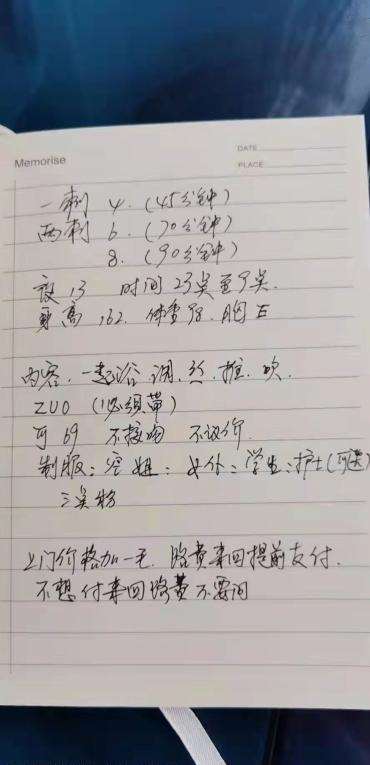 Memorise
DATE
PLACE
一刺 4. (45分钟)
两刺 6. (70分钟)
8. (90分钟)
夜 13 时间 23点至9点
身高 162. 体重 胸
内容. 一起浴 调. 丝. 推. 吹.
ZUO (必须带)
可 69 不接吻 不议价
制服: 空姐: 女仆: 学生: 护士 (可选)
三点粉
上门价格加一毛. 路费来回提前支付.
不想付来回路费不要问